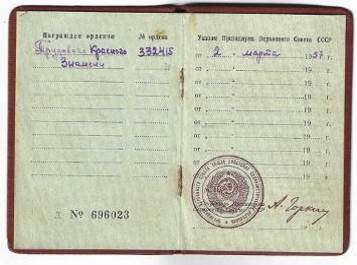 Награжден орденом № ордена
Трудового Красного 332415
Знамени
З № 696023
Указом Президиума Верховного Совета СССР
от "2" марта 1957 г.
от " " 19 г.
от " " 19 г.
от " " 19 г.
от " " 19 г.
от " " 19 г.
от " " 19 г.
от " " 19 г.
от " " 19 г.
А. Горкин